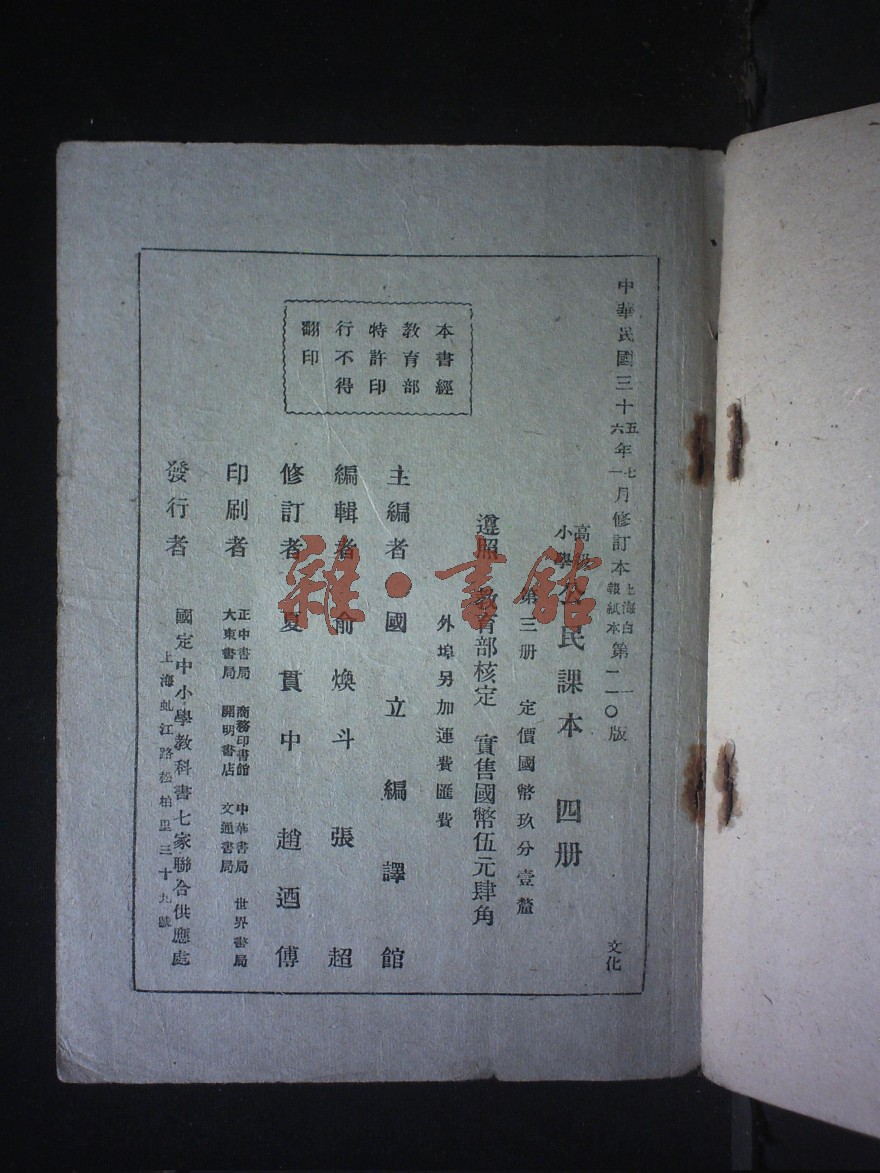 中華民國三十五年七月修訂本上海白報紙本第一版
六 一 二〇
文化
高級小學公民課本 四册
第三册 定價國幣玖分壹釐
遵照 教育部核定 實售國幣伍元肆角
外埠另加運費匯費
本書經
教育部
特許印
行不得
翻印
主編者 國立編譯館
編輯者 俞煥斗 張超
修訂者 夏貫中 趙迺傳
印刷者 正中書局 商務印書館 中華書局 世界書局
大東書局 開明書店 文通書局
發行者 國定中小學教科書七家聯合供應處
上海虬江路松柏里三十九號
雜·書館